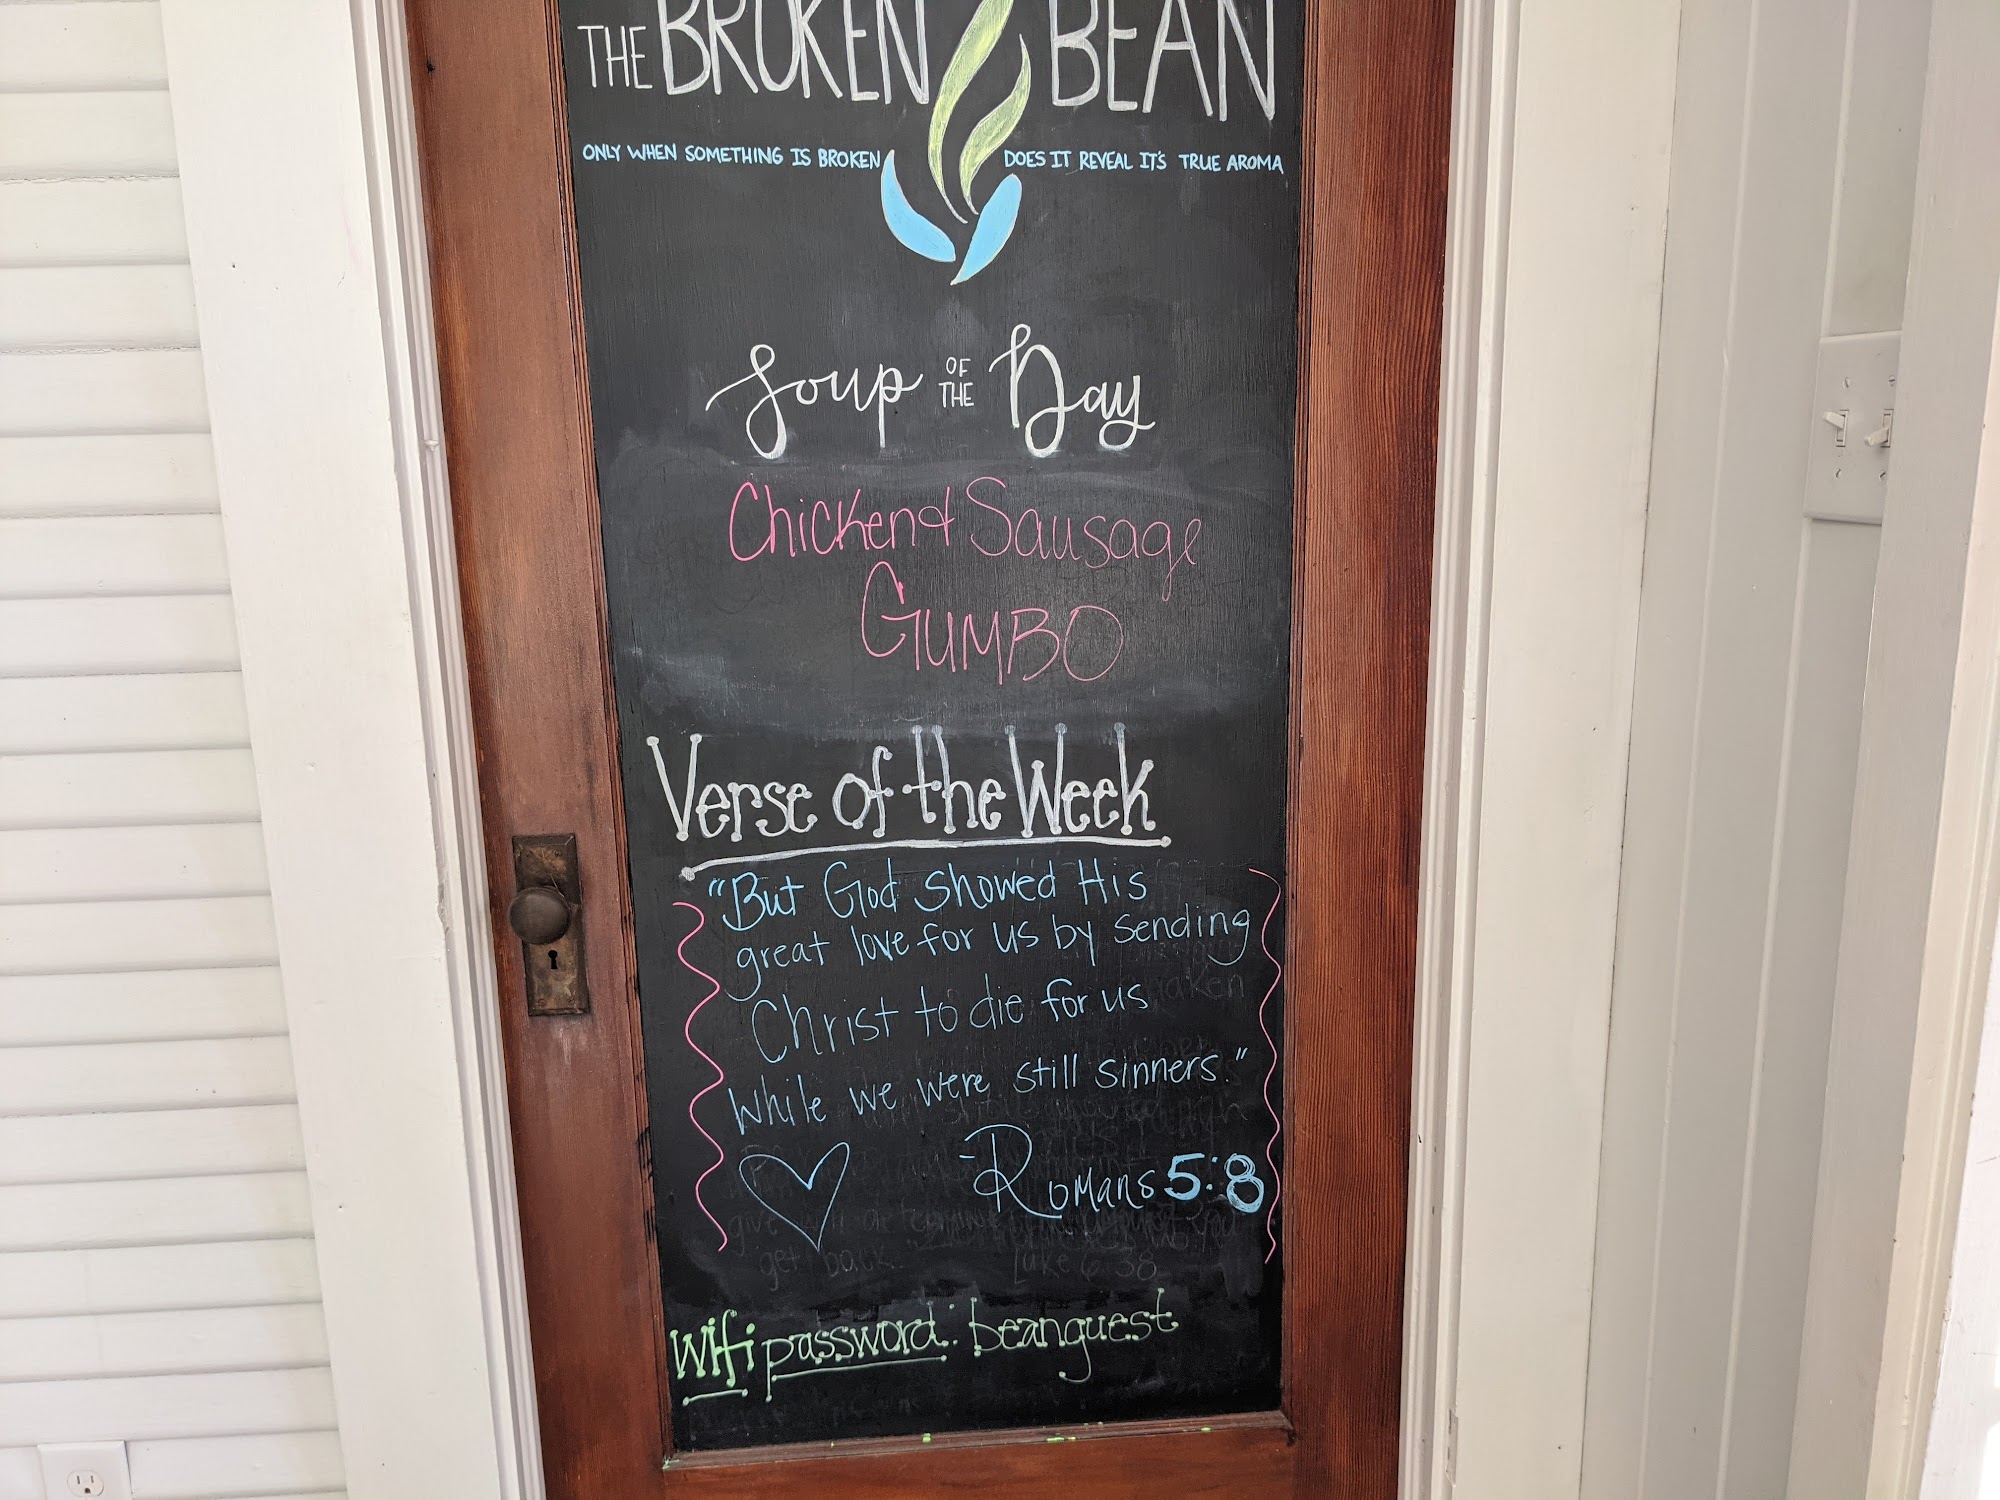 THE BROKEN BEAN
ONLY WHEN SOMETHING IS BROKEN DOES IT REVEAL IT'S TRUE AROMA
Soup OF THE Day
Chicken & Sausage
GUMBO
Verse of the Week
"But God showed His
great love for us by sending
Christ to die for us
while we were still sinners."
Romans 5:8
get back. Luke 6:38
wifi password: beanguest